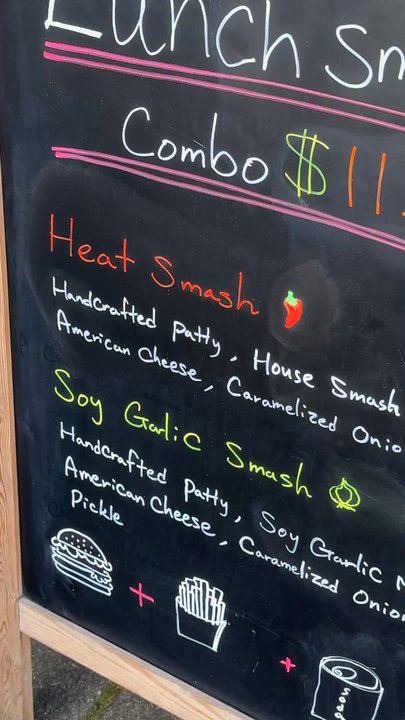 Lunch Sm
Combo $11.
Heat Smash
Handcrafted Patty, House Smash
American Cheese, Caramelized Onio
Soy Garlic Smash
Handcrafted Patty, Soy Garlic
American Cheese, Caramelized Onion
Pickle
+
+
Soda